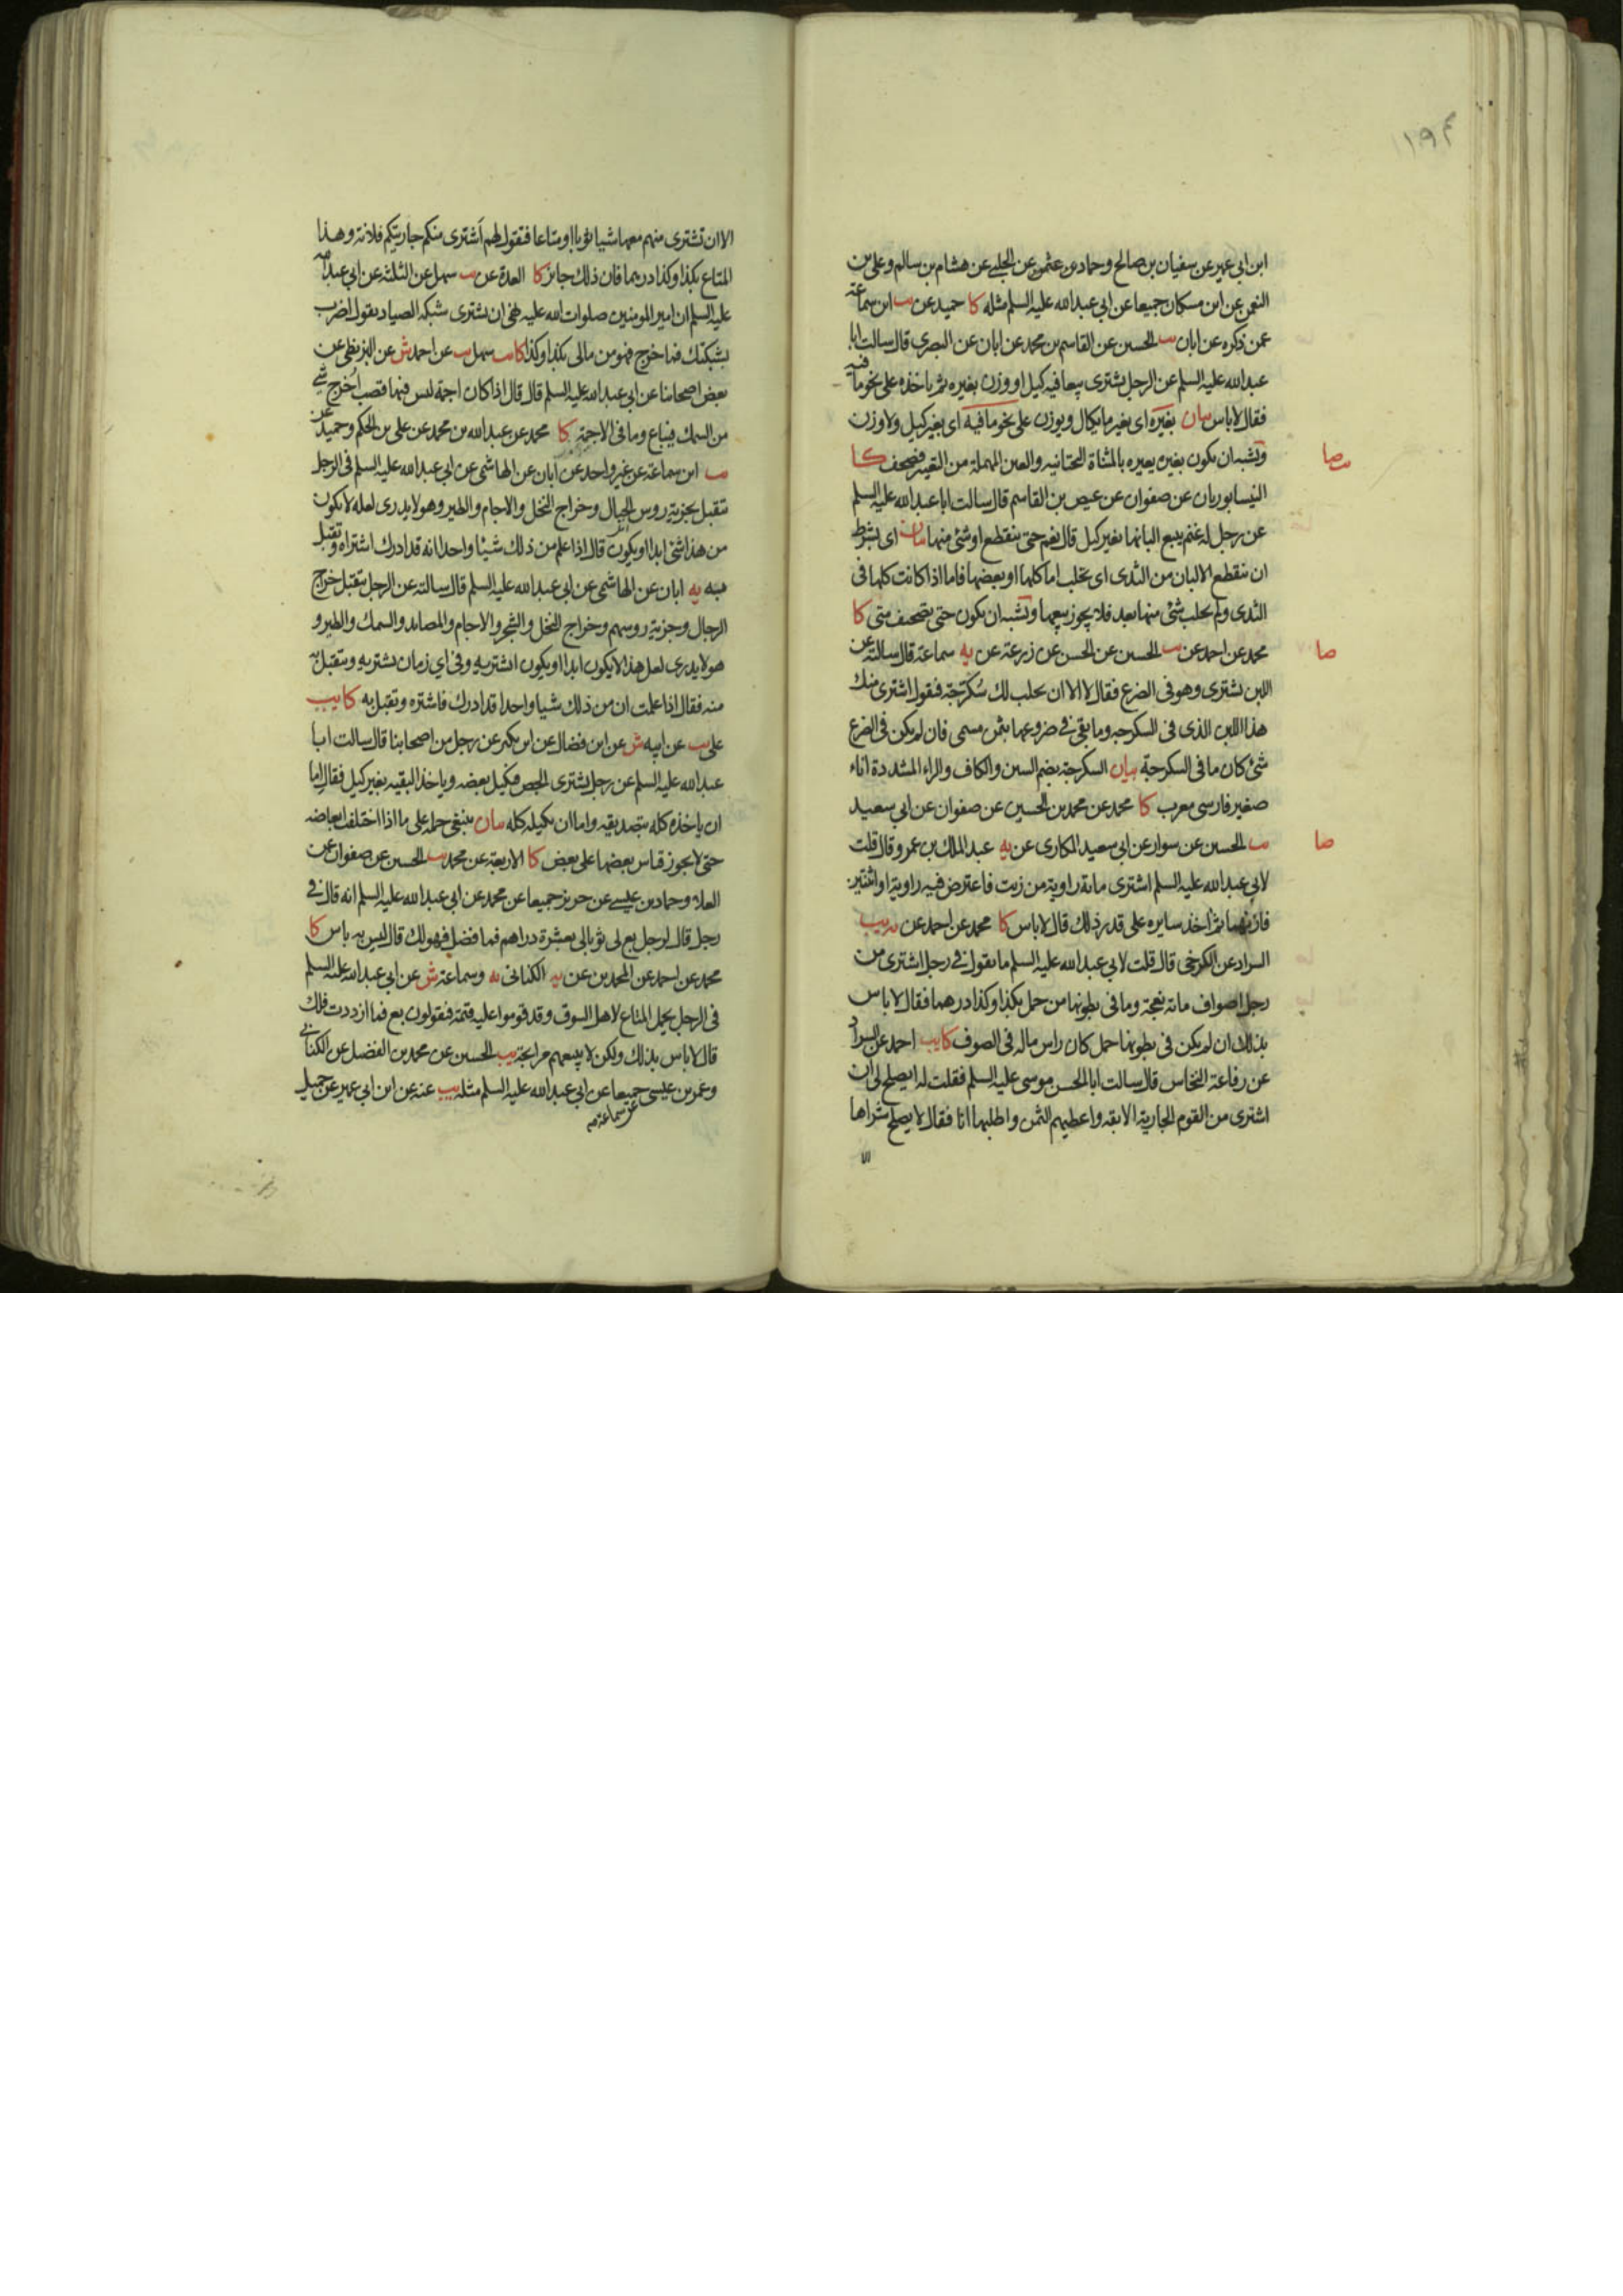 ١١٩٣
ابن ابي عمير عن سفيان بن صالح وحماد بن عثمن عن الحلبي عن هشام بن سالم وعلي بن
النعمن عن ابن مسكان جميعا عن ابي عبد الله عليه السلم مثله كا حميد عن يب ابن سماعة
عمن ذكره عن ابان يب الحسين عن القاسم بن محمد عن ابان عن البصري قال سالت ابا
عبد الله عليه السلم عن الرجل يشترى بيعا فيه كيل او وزن بغيره ثم ياخذه على نحو ما فيه
فقال لا باس بيان بغيره اى بغير ما يكال ويوزن على نحو ما فيه اى بغير كيل ولا وزن
ويشبه ان يكون بغيره يعيره بالمثناة التحتانيه والعين المهملة من التعيير فصحف كا
يب صا
النيسابوريان عن صفوان عن عيص بن القاسم قال سالت ابا عبد الله عليه السلم
عن رجل له غنم يبيع البانها بغير كيل قال نعم حتى ينقطع او شئ منها بيان اى بشرط
ان ينقطع الالبان من الثدى اى يحلب اما كلها او بعضها فاما اذا كانت كلها فى
الثدى ولم يحلب شئ منها بعد فلا يجوز بيعها ويشبه ان يكون حتى تصحيف متى كا
محمد عن احمد عن يب الحسين عن الحسن عن زرعة عن يه سماعة قال سالته عن
صا
اللبن يشترى وهو فى الضرع فقال لا الا ان يحلب لك سُكرّجة فيقول اشترى منك
هذا اللبن الذى فى السكرجه وما بقى فى ضروعها بثمن مسمى فان لم يكن فى الضرع
شئ كان ما فى السكرجة بيان السكرجة بضم السين والكاف والراء المشددة اناء
صغير فارسى معرب كا محمد عن محمد بن الحسين عن صفوان عن ابي سعيد
يب الحسين عن سوار عن ابي سعيد المكارى عن يه عبد الملك بن عمرو قال قلت
صا
لابي عبد الله عليه السلم اشترى مائة راوية من زيت فاعترض فيه راوية او اثنتين
فازنهما ثم اخذ سايره على قدر ذلك قال لا باس كا محمد عن احمد عن يه يب
السراد عن الكرخى قال قلت لابي عبد الله عليه السلم ما تقول فى رجل اشترى من
رجل اصواف مائة نعجة وما فى بطونها من حمل بكذا وكذا درهما فقال لا باس
بذلك ان لم يكن فى بطونها حمل كان راس ماله فى الصوف كا يب احمد عن السراد
عن رفاعة النخاس قال سالت ابا الحسن موسى عليه السلم فقلت له ايصلح لى ان
اشترى من القوم الجارية الآبقه واعطيهم الثمن واطلبها انا فقال لا يصلح شراها
الا
الا ان تشترى منهم معها شيا ثوبا او متاعا فتقول لهم اشترى منكم جاريتكم فلانة وهذا
المتاع بكذا وكذا درهما فان ذلك جايز كا العدة عن يب سهل عن الثلثه عن ابي عبد الله
عليه السلم ان امير المومنين صلوات الله عليه نهى ان يشترى شبكه الصياد يقول اضرب
بشبكتك فما خرج فهو من مالى بكذا وكذا كا يب سهل يب عن احمد ش عن البزنطى عن
بعض اصحابنا عن ابي عبد الله عليه السلم قال قال اذا كان اجمة ليس فيها قصب اُخرج شى
من السمك فيباع وما فى الاجمة كا محمد عن عبد الله بن محمد عن على بن الحكم وحميد عن
يب ابن سماعة عن غير واحد عن ابان عن الهاشمى عن ابي عبد الله عليه السلم فى الرجل
يتقبل بجزية روس الجبال وخراج النخل والاجام والطير وهو لا يدرى لعله لا يكون
من هذا شئ ابدا او يكون قال اذا علم من ذلك شيئا واحدا انه قد ادرك اشتراه وتقبل
به يه ابان عن الهاشمى عن ابي عبد الله عليه السلم قال سالته عن الرجل يتقبل خراج
الرجال وجزية روسهم وخراج النخل والشجر والاجام والمصايد والسمك والطير و
هو لا يدرى لعل هذا لا يكون ابدا او يكون ايشتريه وفى اي زمان يشتريه ويتقبل به
منه فقال اذا علمت ان من ذلك شيا واحدا قد ادرك فاشتره وتقبل به كا يب
على يب عن ابيه ش عن ابن فضال عن ابن بكير عن رجل من اصحابنا قال سالت ابا
عبد الله عليه السلم عن رجل يشترى الجص فيكيل بعضه وياخذ البقيه بغير كيل فقال اما
ان ياخذه كله بتصديقه واما ان يكيله كله بيان ينبغى حمله على ما اذا اختلف ابعاضه
حتى لا يجوز قياس بعضها على بعض كا الاربعة عن محمد يب الحسين عن صفوان عن
العلا وحماد بن عيسى عن حريز جميعا عن محمد عن ابي عبد الله عليه السلم انه قال فى
رجل قال لرجل بع لى ثوبا لى بعشرة دراهم فما فضل فهو لك قال ليس به باس كا
محمد عن احمد عن المحمدين عن يه الكنانى يه وسماعة ش عن ابي عبد الله عليه السلم
فى الرجل يحمل المتاع لاهل السوق وقد قوموا عليه قيمة فيقولون بع فما ازددت فلك
قال لا باس بذلك ولكن لا يبيعهم مرابحة يب الحسين عن محمد بن الفضل عن الكنانى
وعمر بن عيسى جميعا عن ابي عبد الله عليه السلم مثله يب عنه عن ابن ابي عمير عن جميل
عن سماعة صه